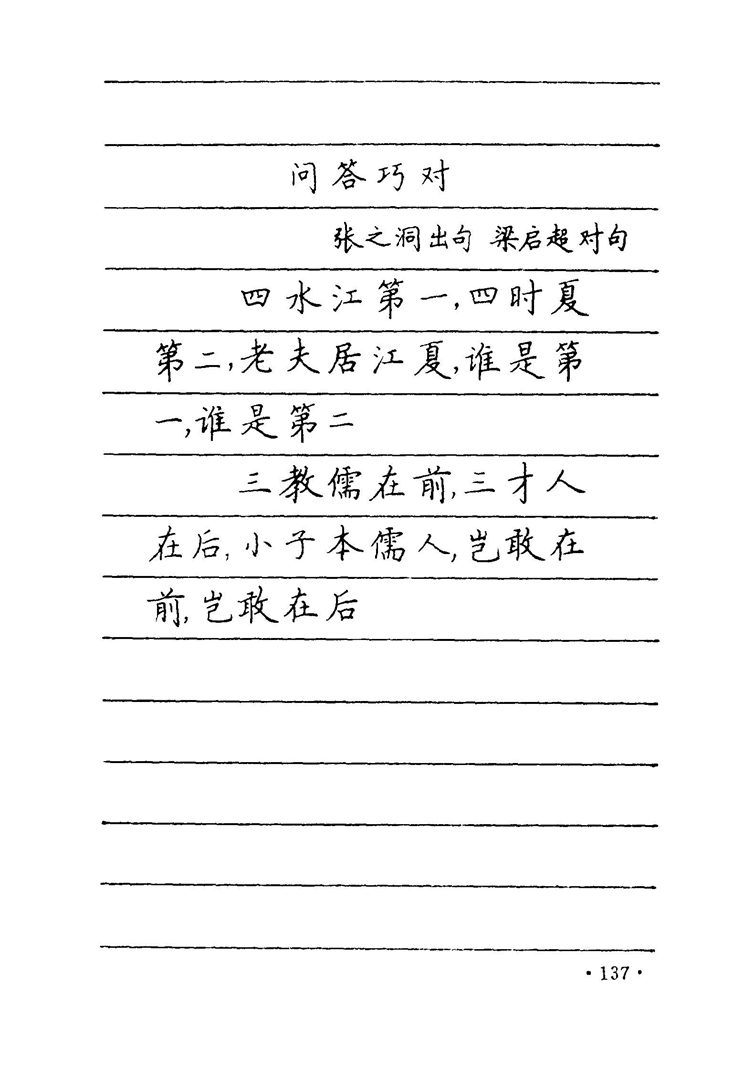 问答巧对
张之洞出句 梁启超对句
四水江第一,四时夏
第二,老夫居江夏,谁是第
一,谁是第二
三教儒在前,三才人
在后,小子本儒人,岂敢在
前,岂敢在后
·137·